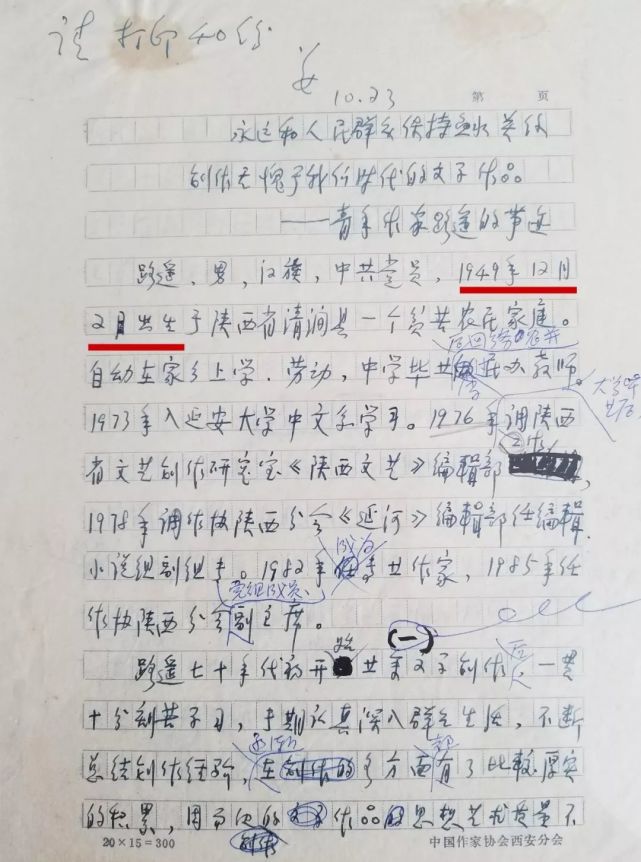 请打印40份
10.23
第 页
永远和人民群众保持血肉关系
创作无愧于我们时代的文学作品
——青年作家路遥的事迹
路遥，男，汉族，中共党员，1949年12月
2日出生于陕西省清涧县一个贫苦农民家庭。
自幼在家乡上学、劳动，中学毕业 民办教师。
大学毕业后
1973年入延安大学中文系学习。1976年调陕西
省文艺创作研究室《陕西文艺》编辑部 工作，
1978年调作协陕西分会《延河》编辑部任编辑、
小说组副组长。1982年成为专业作家，1985年任
党组成员、
作协陕西分会副主席。
（一）
路遥七十年代初开始业余文学创作后，一贯
十分刻苦学习，长期认真深入群众生活，不断
总结创作经验，在创作的多方面都有了比较厚实
的积累，因而他的创作作品的思想艺术质量不
20×15=300
中国作家协会西安分会